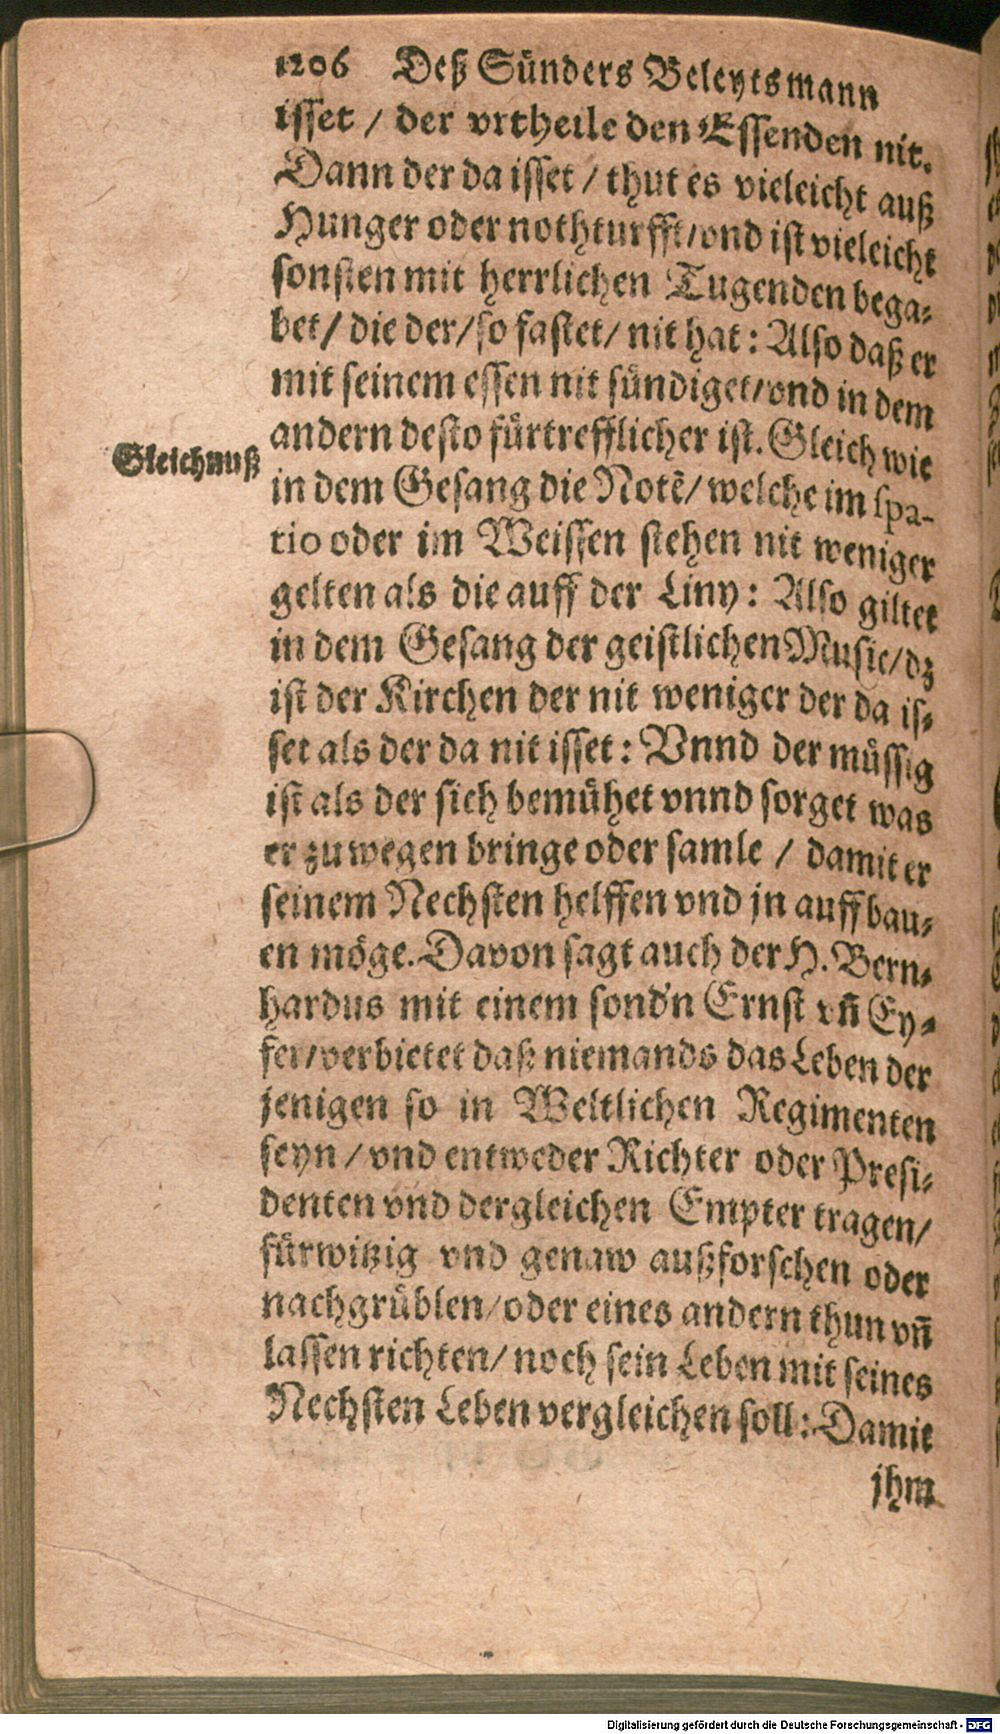 1206 Deß Sünders Beleytsmann
isset / der vrtheile den Essenden nit.
Dann der da isset / thut es vieleicht auß
Hunger oder nothturfft/vnd ist vieleicht
sonsten mit herrlichen Tugenden bega-
bet/ die der/so fastet/ nit hat: Also daß er
mit seinem essen nit sündiget/vnd in dem
andern desto fürtrefflicher ist. Gleich wie
Gleichnuß
in dem Gesang die Notē/ welche im spa-
tio oder im Weissen stehen nit weniger
gelten als die auff der Liny: Also giltet
in dem Gesang der geistlichen Music/dz
ist der Kirchen der nit weniger der da is-
set als der da nit isset: Vnnd der müssig
ist als der sich bemühet vnnd sorget was
er zu wegen bringe oder samle / damit er
seinem Nechsten helffen vnd jn auffbau-
en möge. Davon sagt auch der H. Bern-
hardus mit einem sond'n Ernst vn̄ Ey-
fer/verbietet daß niemands das Leben der
jenigen so in Weltlichen Regimenten
seyn / vnd entweder Richter oder Presi-
denten vnd dergleichen Empter tragen/
fürwitzig vnd genaw außforschen oder
nachgrüblen/oder eines andern thun vn̄
lassen richten/ noch sein Leben mit seines
Nechsten Leben vergleichen soll: Damit
jhm
Digitalisierung gefördert durch die Deutsche Forschungsgemeinschaft - DFG